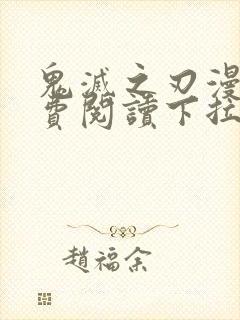 鬼滅之刃漫
費閱讀下拉
趙福余